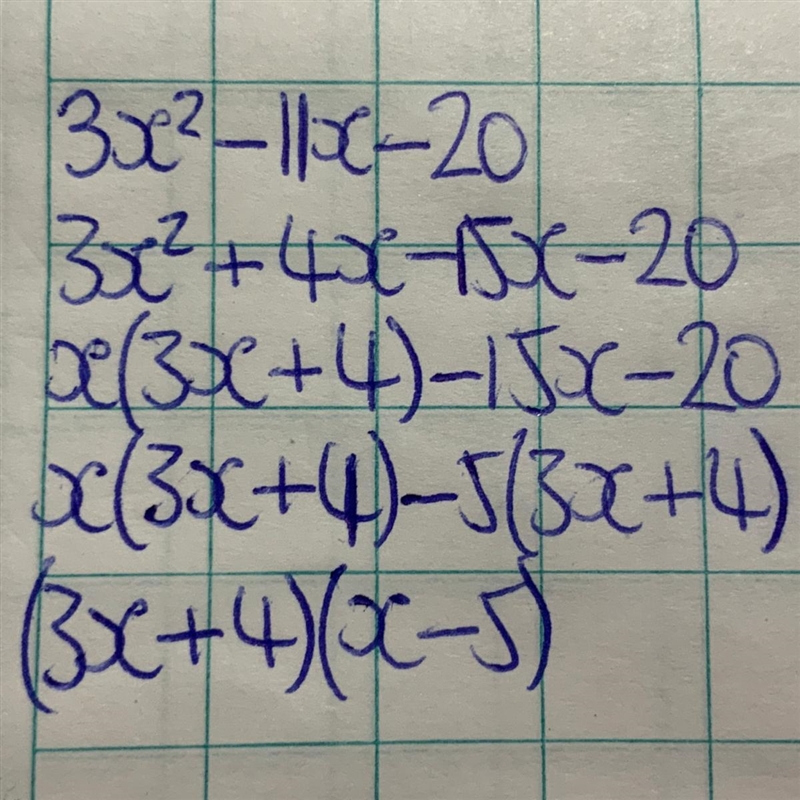 3x² - 11x - 20
3x² + 4x - 15x - 20
x(3x + 4) - 15x - 20
x(3x + 4) - 5(3x + 4)
(3x + 4)(x - 5)